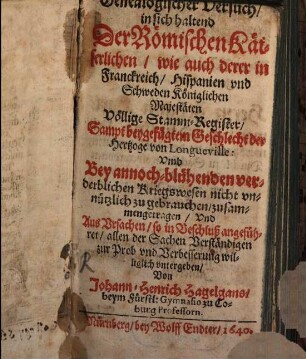 Genealogischer Versuch/
in sich haltend
Der Römischen Käi-
serlichen / wie auch derer in
Franckreich / Hispanien vnd
Schweden Königlichen
Majestäten
Völlige Stamm-Register/
Sampt beygefügtem Geschlecht der
Hertzoge von Longueville:
Vnd
Bey annoch-blühenden ver-
derblichen Kriegswesen nicht vn-
nützlich zu gebrauchen/ zusam-
mengetragen / Vnd
Aus Vrsachen/ so in Beschluß angefüh-
ret/ allen der Sachen Verständigen
zur Prob vnd Verbesserung wil-
liglich vntergeben/
Von
Johann-Henrich Hagelgans/
beym Fürstl: Gymnasio zu Co-
burg Professorn.
Nürnberg/ bey Wolff Endter/ 1640.